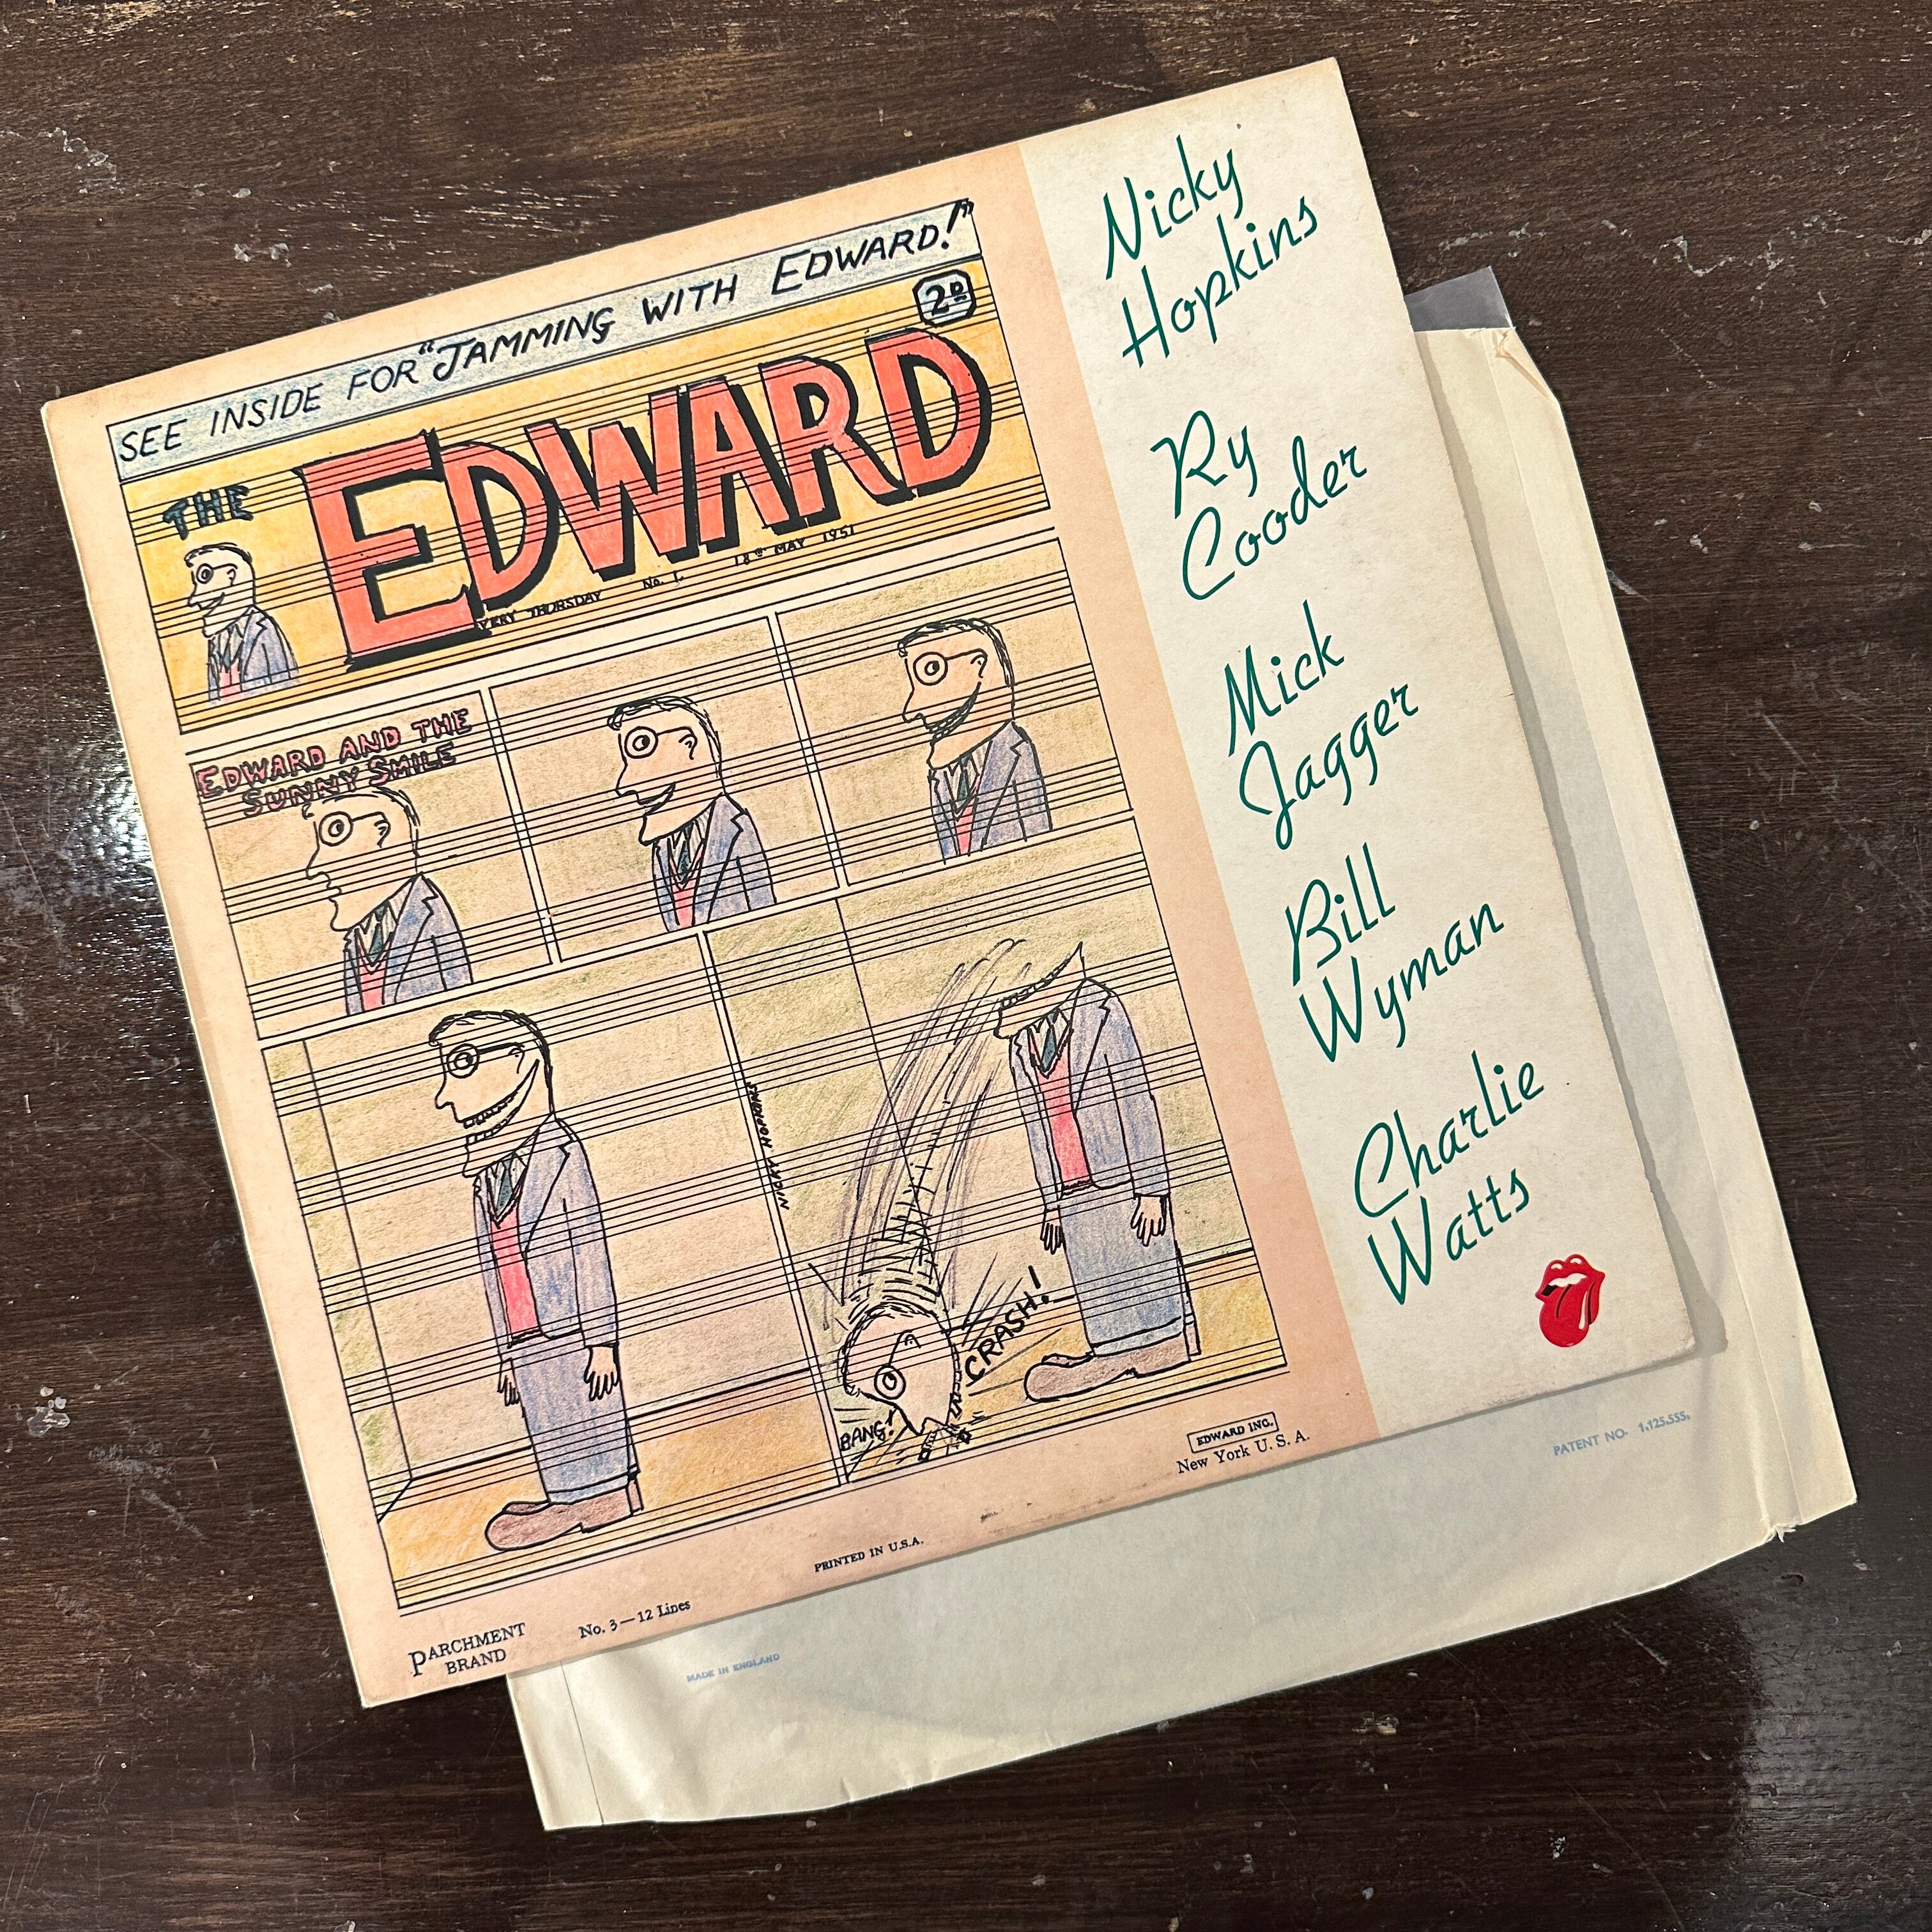 SEE INSIDE FOR "JAMMING WITH EDWARD!"
2D
THE
EDWARD
EVERY THURSDAY No. 1. 18TH MAY 1951
EDWARD AND THE
SUNNY SMILE
NICKY HOPKINS
CRASH!
BANG!
EDWARD INC.
New York U. S. A.
PRINTED IN U.S.A.
No. 3—12 Lines
PARCHMENT
BRAND
Nicky
Hopkins
Ry
Cooder
Mick
Jagger
Bill
Wyman
Charlie
Watts
MADE IN ENGLAND
PATENT NO. 1,125,555.